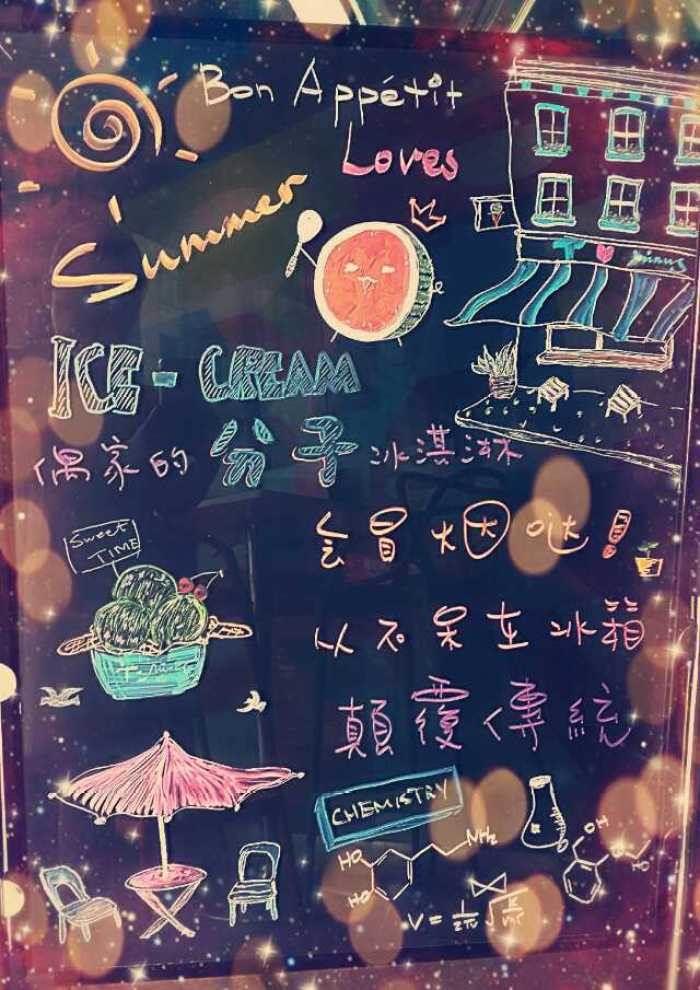 Bon Appétit
Loves
Summer
T ♥ minus
ICE-CREAM
偶家的分子冰淇淋
会冒烟哒!
Sweet
TIME
以不呆在冰箱
顛覆傳統
CHEMISTRY
HO
NH₂
HO
OH